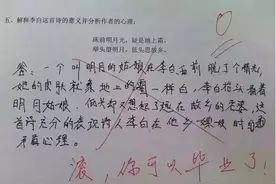 五、解释李白这首诗的意义并分析作者的心理:
床前明月光，疑是地上霜。
举头望明月，低头思故乡。
答:一个叫明月的姑娘在李白面前脱了个精光，
她的皮肤就象地上的霜一样白，李白抬头看着
明月姑娘，低头却又想起了她在故乡的老婆，这
首诗充分的表现诗人李白在他乡嫖娼时的
矛盾心理。
滚，你可以毕业了!